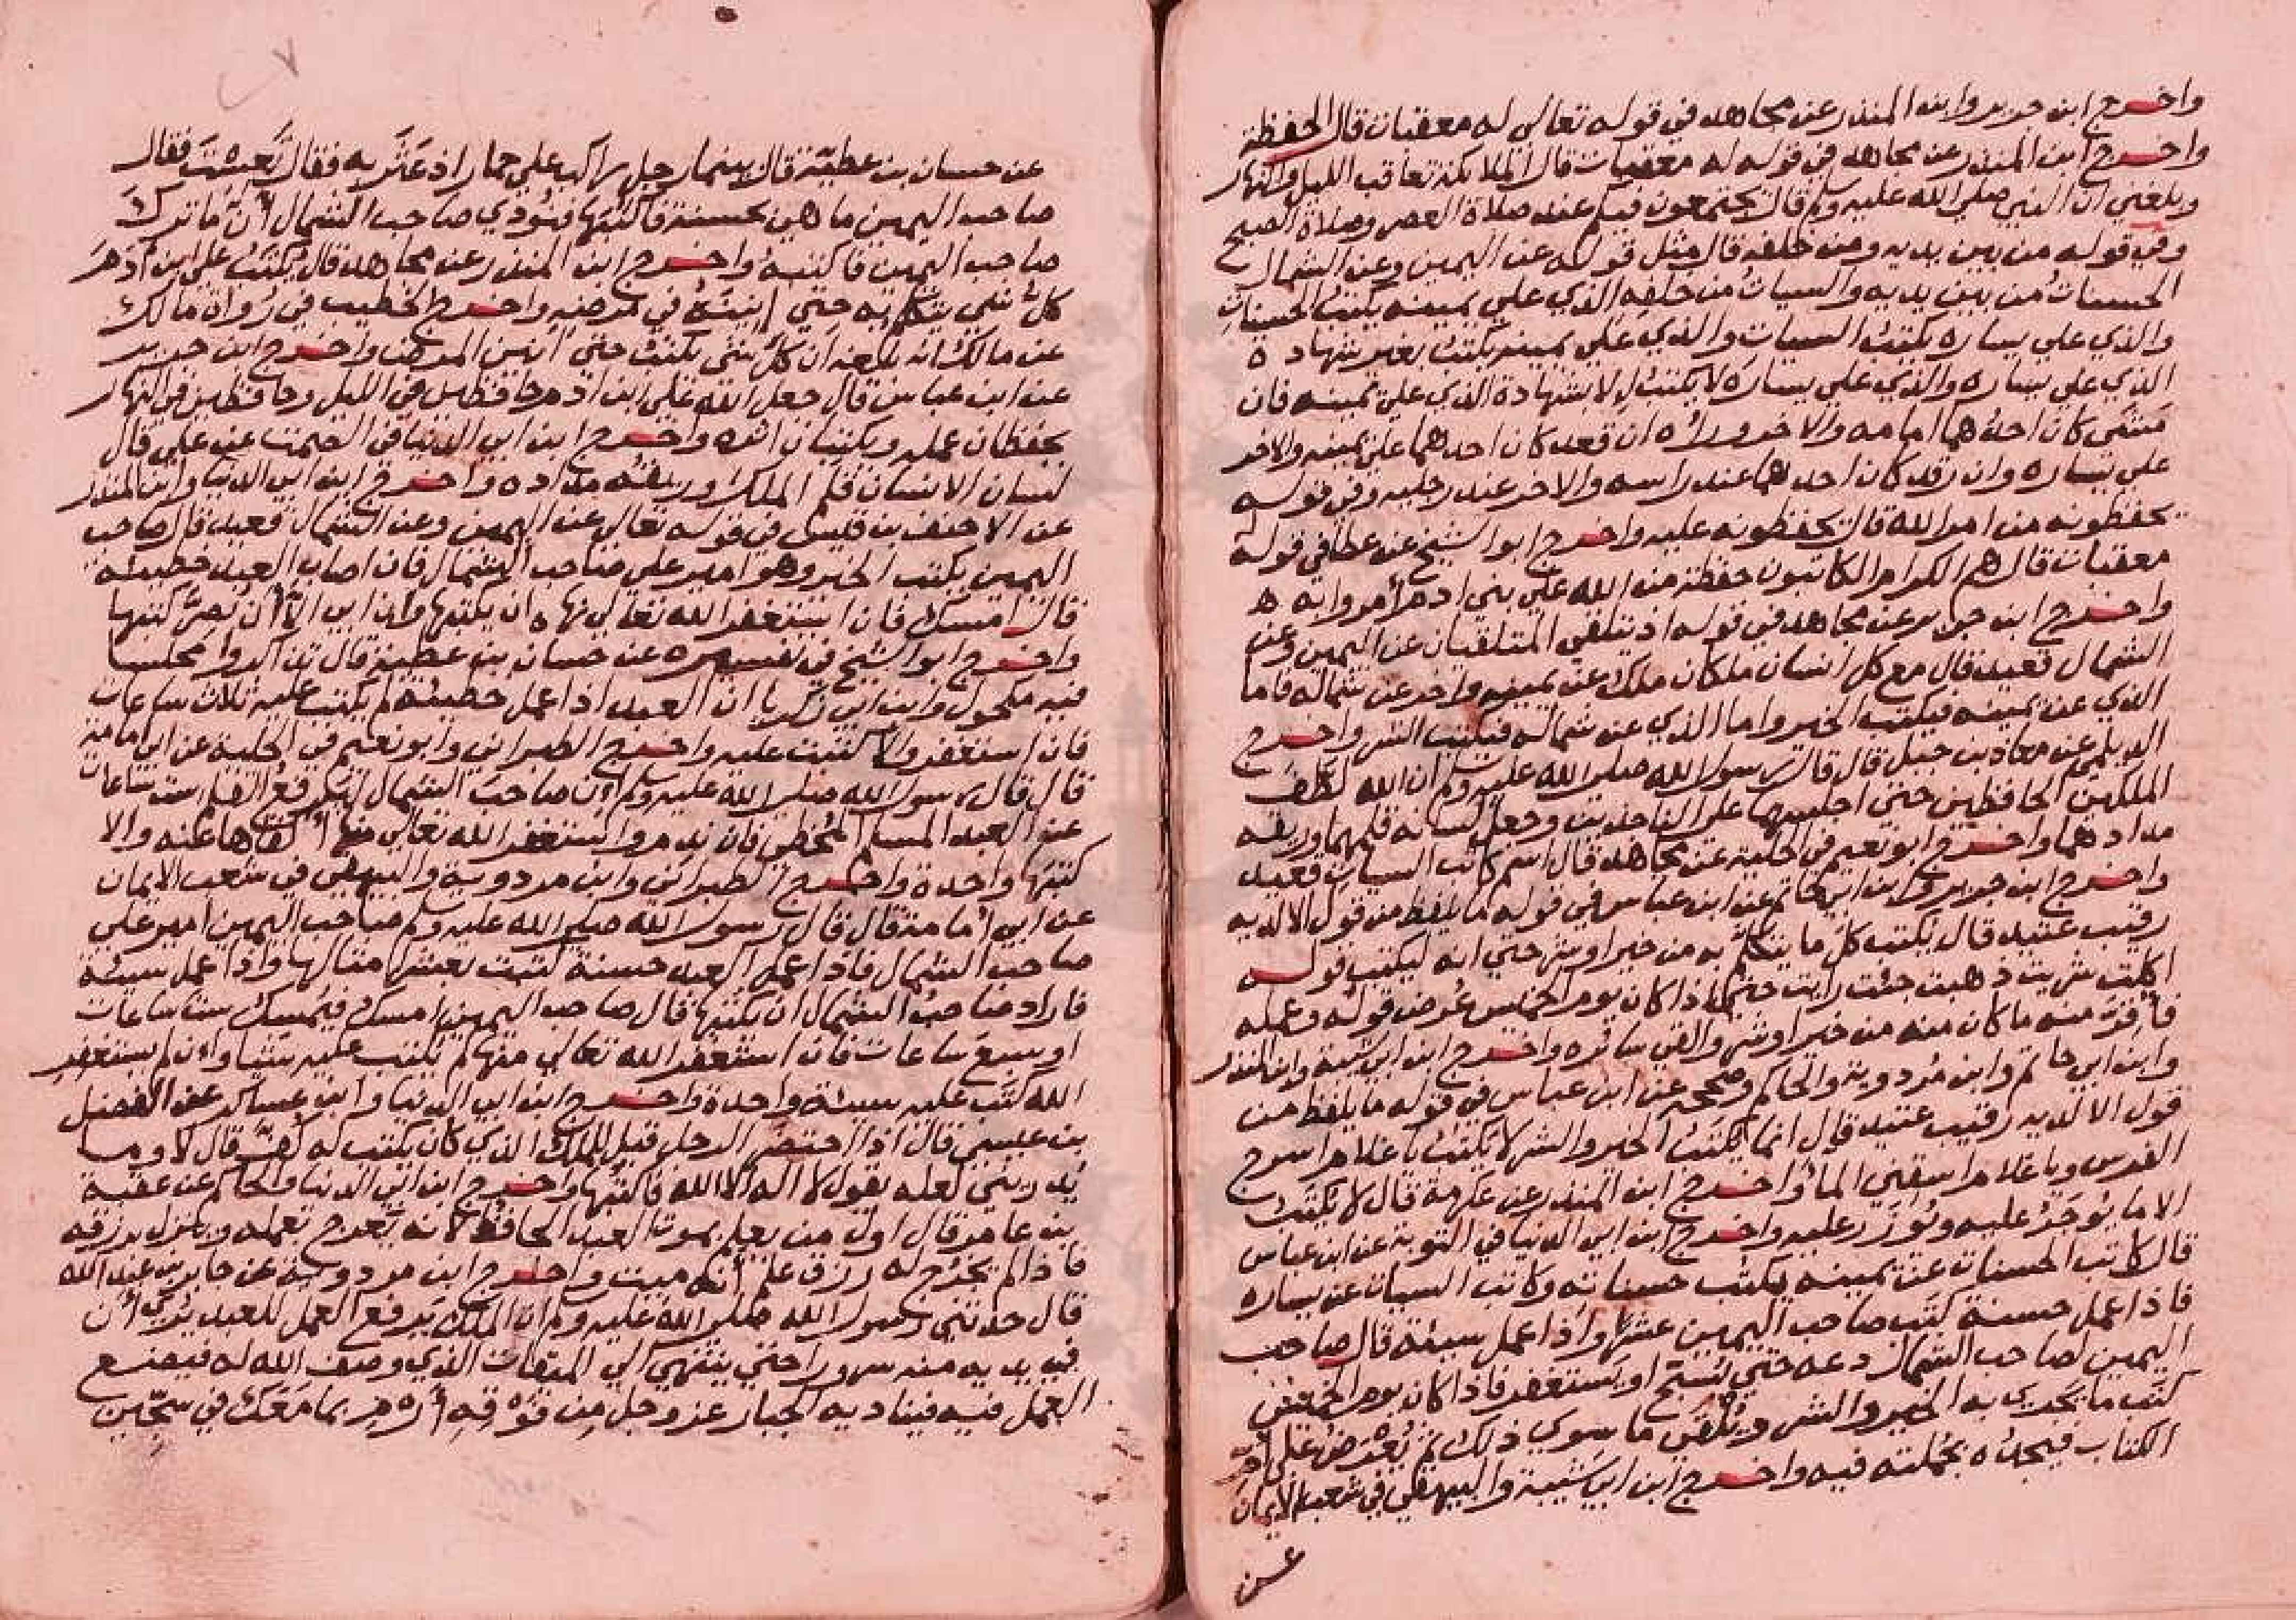 واخرج ابن جرير وابن المنذر عن مجاهد في قوله تعالى له معقبات قال الحفظة
واخرج ابن المنذر عن مجاهد في قوله له معقبات قال الملائكة تعاقب الليل والنهار
وبلغني ان النبي صلى الله عليه وسلم قال يجتمعون فيكم عند صلاة العصر وصلاة الصبح
وفي قوله من بين يديه ومن خلفه قال مثل قوله عن اليمين وعن الشمال
الحسنات من بين يديه والسيات من خلفه الذي على يمينه يكتب الحسنات
والذي على يساره يكتب السيات والذي على يمينه يكتب بغير شهادة
الذي على يساره والذي على يساره لا يكتب الا بشهادة الذي على يمينه فان
مشى كان احدهما امامه والاخر وراه ان قعد كان احدهما على يمينه والاخر
على يساره وان رقد كان احدهما عند راسه والاخر عند رجليه وفي قوله
يحفظونه من امر الله قال يحفظونه عليه واخرج ابو الشيخ عن عطا في قوله
معقبات قال هم الكرام الكاتبون حفظة من الله على بني ادم أمروا به ه
واخرج ابن جرير عن مجاهد في قوله اذ يتلقى المتلقيان عن اليمين وعن
الشمال قعيد قال مع كل انسان ملكان ملك عن يمينه واخر عن شماله فاما
الذي عن يمينه فيكتب الخير واما الذي عن شماله فيكتب الشر واخرج
الديلمي عن معاذ بن جبل قال قال رسول الله صلى الله عليه وسلم ان الله لطف
الملكين الحافظين حتى اجلسهما على الناجذين وجعل لسانه قلمهما وريقه
مدادهما واخرج ابو نعيم في الحلية عن مجاهد قال اسم كاتب السيات قعيد
واخرج ابن جرير وابن ابي حاتم عن ابن عباس في قوله ما يلفظ من قول الا لديه
رقيب عتيد قال يكتب كل ما يتكلم به من خير او شر حتى انه ليكتب قوله
اكلت شربت ذهبت جئت رايت حتى اذا كان يوم الخميس عُرض قوله وعمله
فأقر منه ما كان منه من خير او شر والقي سائره واخرج ابن ابي شيبة وابن المنذر
وابن ابي حاتم وابن مردوية والحاكم وصححه عن ابن عباس في قوله ما يلفظ من
قول الا لديه رقيب عتيد قال انما يكتب الخير والشر لا يكتب يا غلام اسرج
الفرس ويا غلام اسقني الماء واخرج ابن المنذر عن عكرمة قال لا يكتب
الا ما يؤجر عليه ويؤزر عليه واخرج ابن ابي الدنيا في التوبة عن ابن عباس
قال كاتب الحسنات عن يمينه يكتب حسناته وكاتب السيات عن يساره
فاذا عمل حسنة كتب صاحب اليمين عشرا واذا عمل سيئة قال صاحب
اليمين لصاحب الشمال دعه حتى يسبح او يستغفر فاذا كان يوم الخميس
كتب ما يجري به الخير والشر ويلقى ما سوى ذلك ثم يعرض على أم
الكتاب فيجده بجملته فيه واخرج ابن ابي شيبة والبيهقي في شعب الايمان
عن
عن حسان بن عطية قال بينما رجل راكب على حمار اذ عثر به فقال تعست فقال
صاحب اليمين ما هي بحسنة فاكتبها فنودي صاحب الشمال أن ما ترك
صاحب اليمين فاكتبه واخرج ابن المنذر عن مجاهد قال يكتب على ابن آدم
كل شي يتكلم به حتى انينه في مرضه واخرج الخطيب في رواة مالك
عن مالك انه بلغه ان كل شي يكتب حتى انين المريض واخرج ابن جرير
عن ابن عباس قال جعل الله على ابن ادم حافظين في الليل وحافظين في النهار
يحفظان عمله ويكتبان اثره واخرج ابن ابي الدنيا في الصمت عن علي قال
لسان الانسان قلم الملك وريقه مداده واخرج ابن ابي الدنيا وابن المنذر
عن الاحنف بن قيس في قوله تعالى عن اليمين وعن الشمال قعيد قال صاحب
اليمين يكتب الخير وهو امير على صاحب الشمال فان اصاب العبد خطيئة
قال امسك فان استغفر الله تعالى نهاه ان يكتبها وان ابى الا أن يصر كتبها
واخرج ابو الشيخ في تفسيره عن حسان بن عطية قال تذاكروا مجلسا
فيه مكحول وابن ابي زكريا ان العبد اذا عمل خطيئة لم يكتب عليه ثلاث ساعات
فان استغفر والا كتبت عليه واخرج الطبراني وابو نعيم في الحلية عن ابي امامة
قال قال رسول الله صلى الله عليه وسلم إن صاحب الشمال ليرفع القلم ست ساعات
عن العبد المسلم المخطي فان ندم واستغفر الله تعالى منها ألقاها عنه والا
كتبها واحدة واخرج الطبراني وابن مردوية والبيهقي في شعب الايمان
عن ابي أمامة قال قال رسول الله صلى الله عليه وسلم صاحب اليمين امير على
صاحب الشمال فاذا عمل العبد حسنة كتبت بعشر امثالها واذا عمل سيئة
فاراد صاحب الشمال ان يكتبها قال صاحب اليمين امسك فيمسك ست ساعات
او سبع ساعات فان استغفر الله تعالى منها لم يكتب عليه شيا وان لم يستغفر
الله كتب عليه سيئة واحدة واخرج ابن ابي الدنيا وابن عساكر عن الفضل
بن عيسى قال اذا احتضر الرجل قيل للملك الذي كان يكتب له كف قال لا وما
يدريني لعله يقول لا اله الا الله فاكتبها واخرج ابن ابي الدنيا والحاكم عن عقبة
بن عامر قال اول من يعلم بموت العبد الحافظ لانه يعرج بعمله وينزل برزقه
فاذا لم يخرج له رزق علم أنه ميت واخرج ابن مردوية عن جابر بن عبد الله
قال حدثني رسول الله صلى الله عليه وسلم ان الملك يرفع العمل للعبد يرى أن
في يديه منه سرورا حتى ينتهي الى الميقات الذي وصف الله له فيضع
العمل فيه فيناديه الجبار عز وجل من فوقه أرم بما معك في سجين